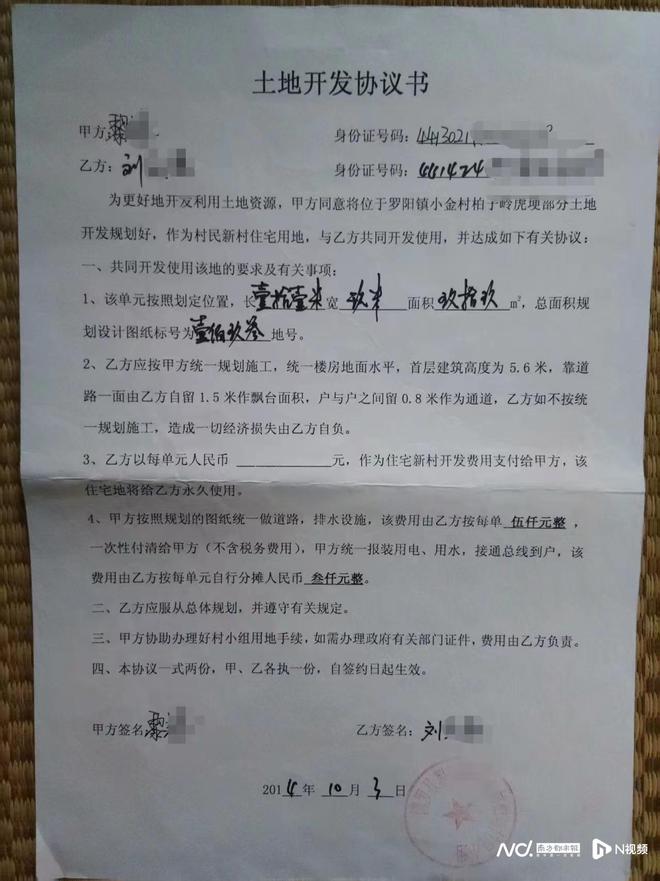 土地开发协议书
甲方:黎 身份证号码:4413021
乙方:刘 身份证号码:441424
为更好地开发利用土地资源，甲方同意将位于罗阳镇小金村柏子岭虎坝部分土地
开发规划好，作为村民新村住宅用地，与乙方共同开发使用，并达成如下有关协议：
一、共同开发使用该地的要求及有关事项：
1、该单元按照划定位置，长壹拾壹米宽 玖米 面积 玖拾玖 m²，总面积规
划设计图纸标号为壹佰玖叁地号。
2、乙方应按甲方统一规划施工，统一楼房地面水平，首层建筑高度为 5.6 米，靠道
路一面由乙方自留 1.5 米作飘台面积，户与户之间留 0.8 米作为通道，乙方如不按统
一规划施工，造成一切经济损失由乙方自负。
3、乙方以每单元人民币 ____________ 元，作为住宅新村开发费用支付给甲方，该
住宅地将给乙方永久使用。
4、甲方按照规划的图纸统一做道路，排水设施，该费用由乙方按每单 伍仟元整 ，
一次性付清给甲方（不含税务费用），甲方统一报装用电、用水，接通总线到户，该
费用由乙方按每单元自行分摊人民币 叁仟元整。
二、乙方应服从总体规划，并遵守有关规定。
三、甲方协助办理好村小组用地手续，如需办理政府有关部门证件，费用由乙方负责。
四、本协议一式两份，甲、乙各执一份，自签约日起生效。
甲方签名 黎 乙方签名：刘
2014年 10 月 3 日
南方都市报 N视频